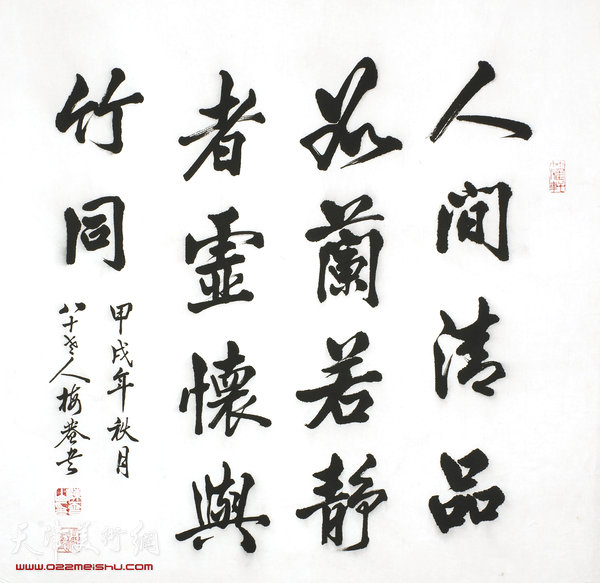 人間清品
如蘭若靜
者靈懷與
竹同
甲戌年秋月
八十老人梅菴書
天津美術網
www.022meishu.com